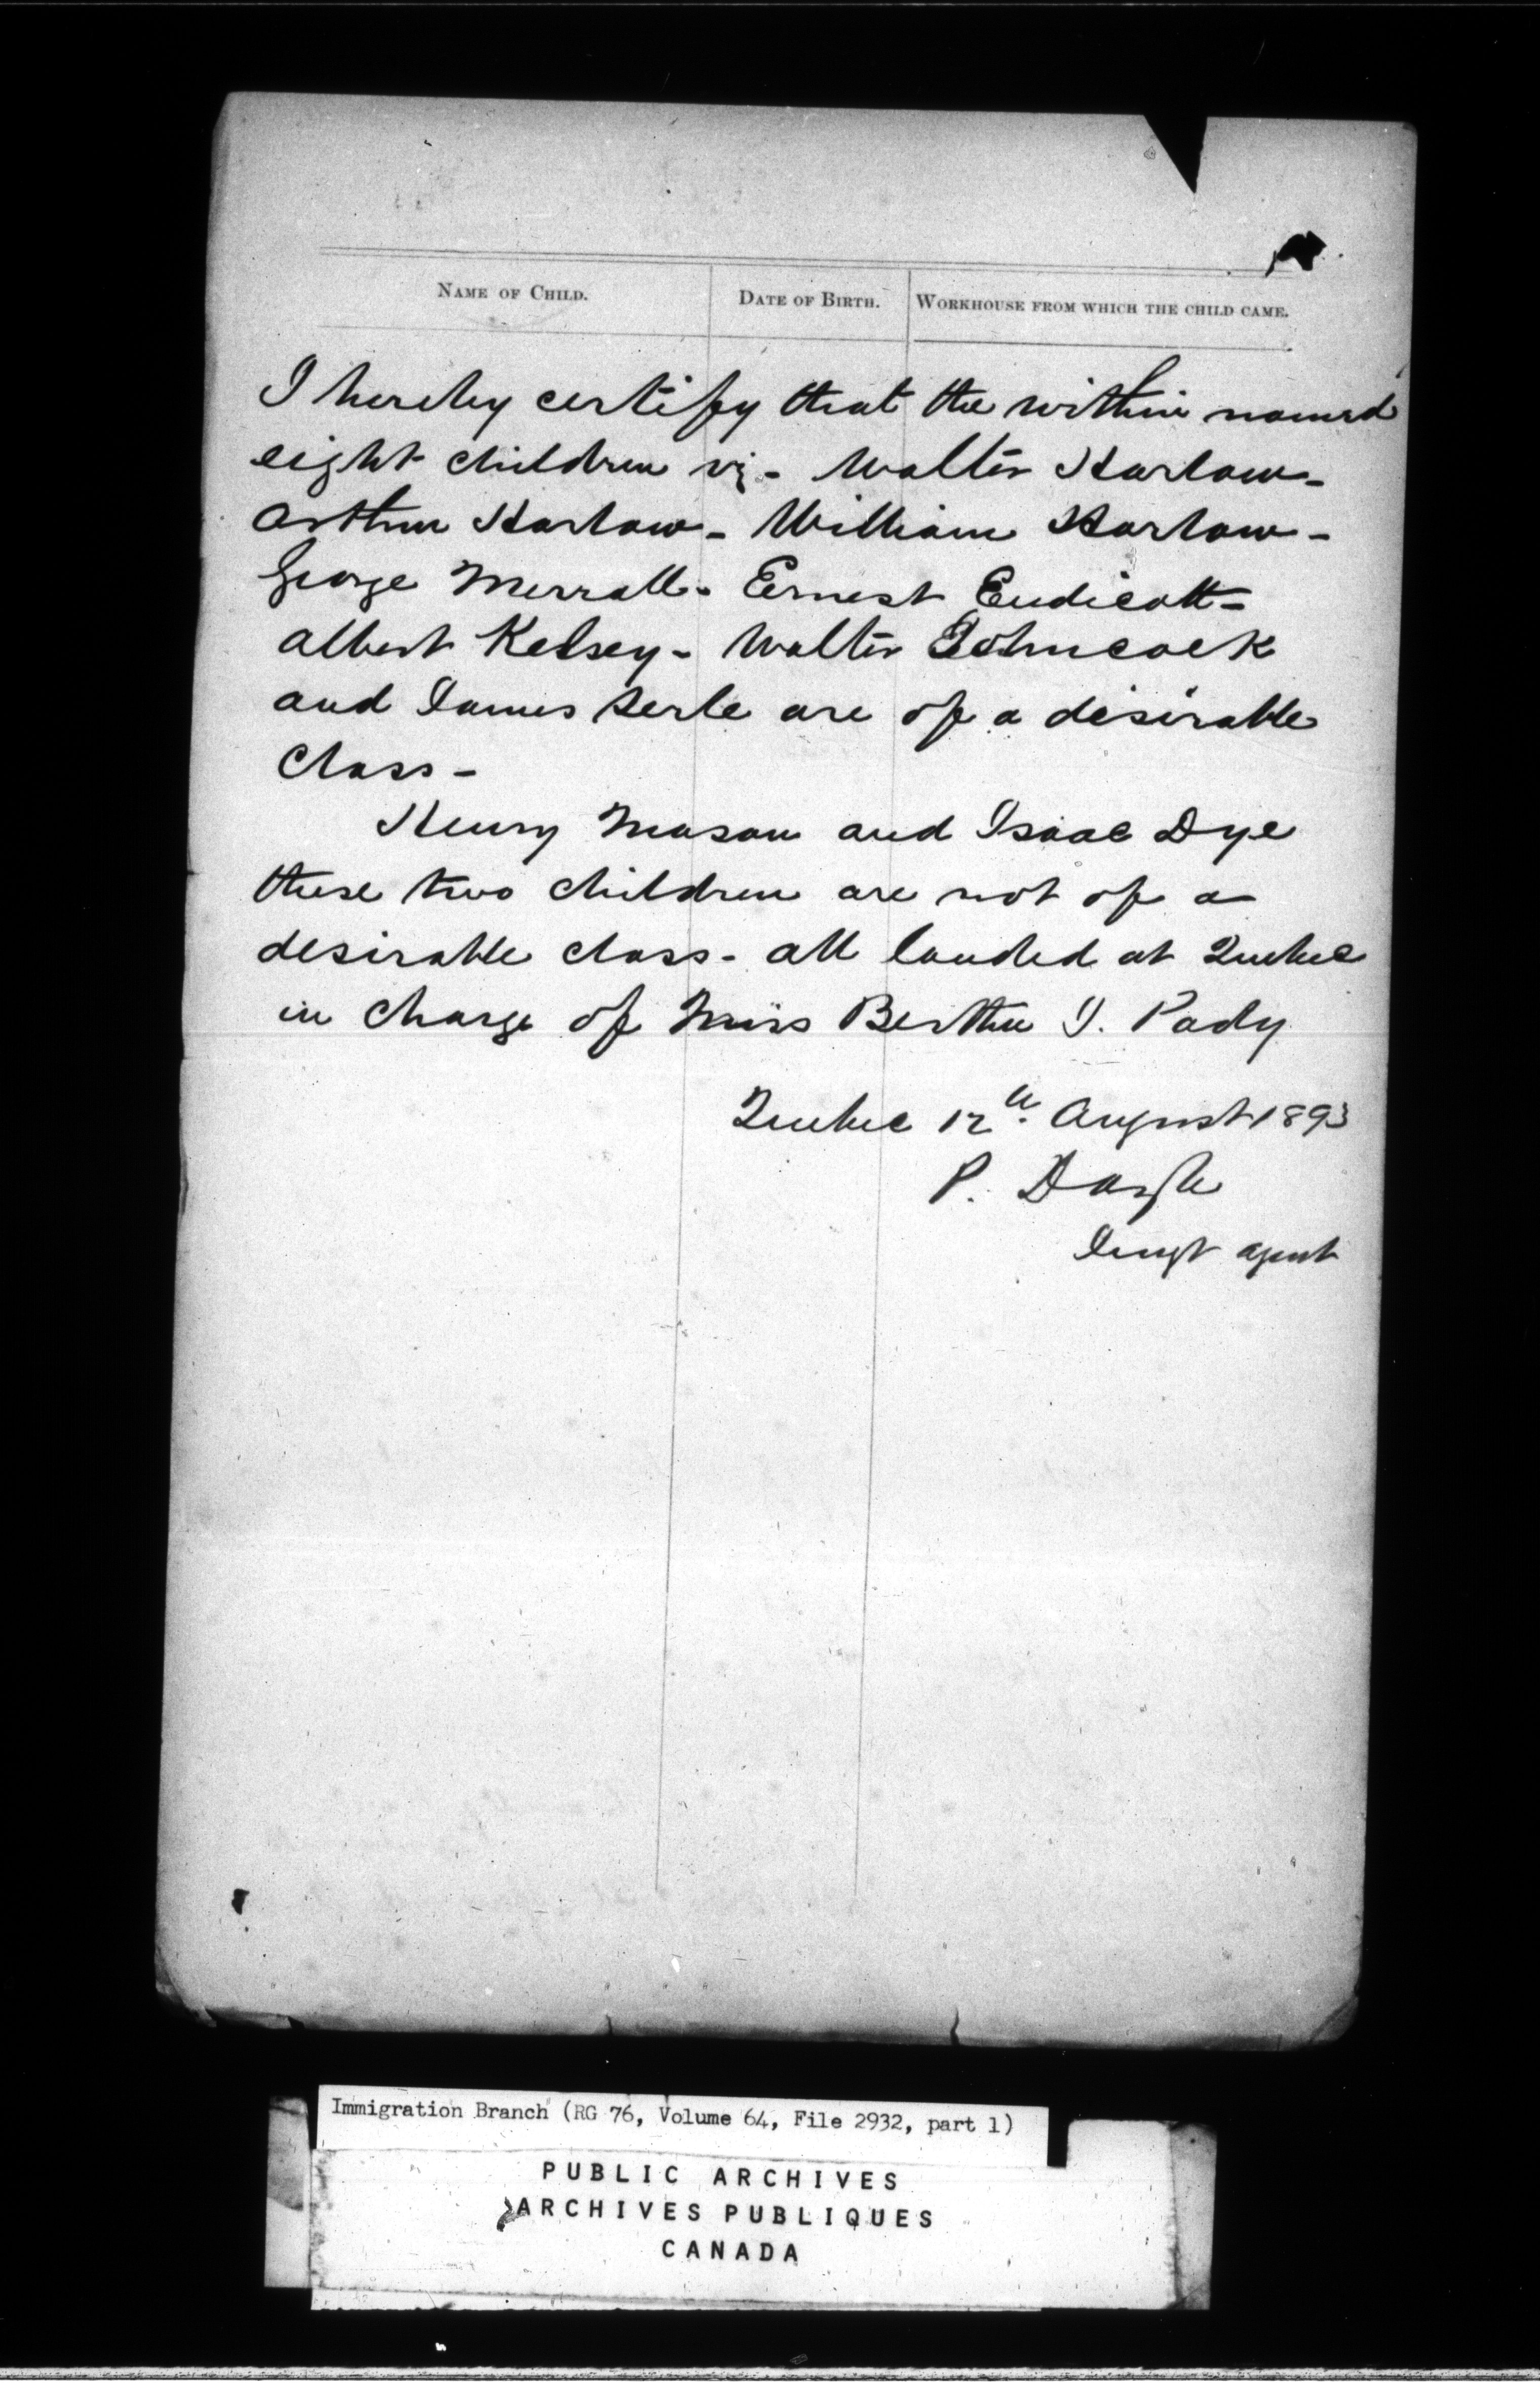 NAME OF CHILD. DATE OF BIRTH. WORKHOUSE FROM WHICH THE CHILD CAME.
I hereby certify that the within named
eight children viz- Walter Harlow-
Arthur Harlow- William Harlow-
George Merrall- Ernest Endicott-
Albert Kelsey- Walter Johncock
and James Serle are of a desirable
Class-
Henry Mason and Isaac Dye
these two children are not of a
desirable class- all landed at Quebec
in charge of Miss Bertha I. Pady
Quebec 12th August 1893
P. Doyle
Imgt agent
Immigration Branch (RG 76, Volume 64, File 2932, part 1)
PUBLIC ARCHIVES
ARCHIVES PUBLIQUES
CANADA